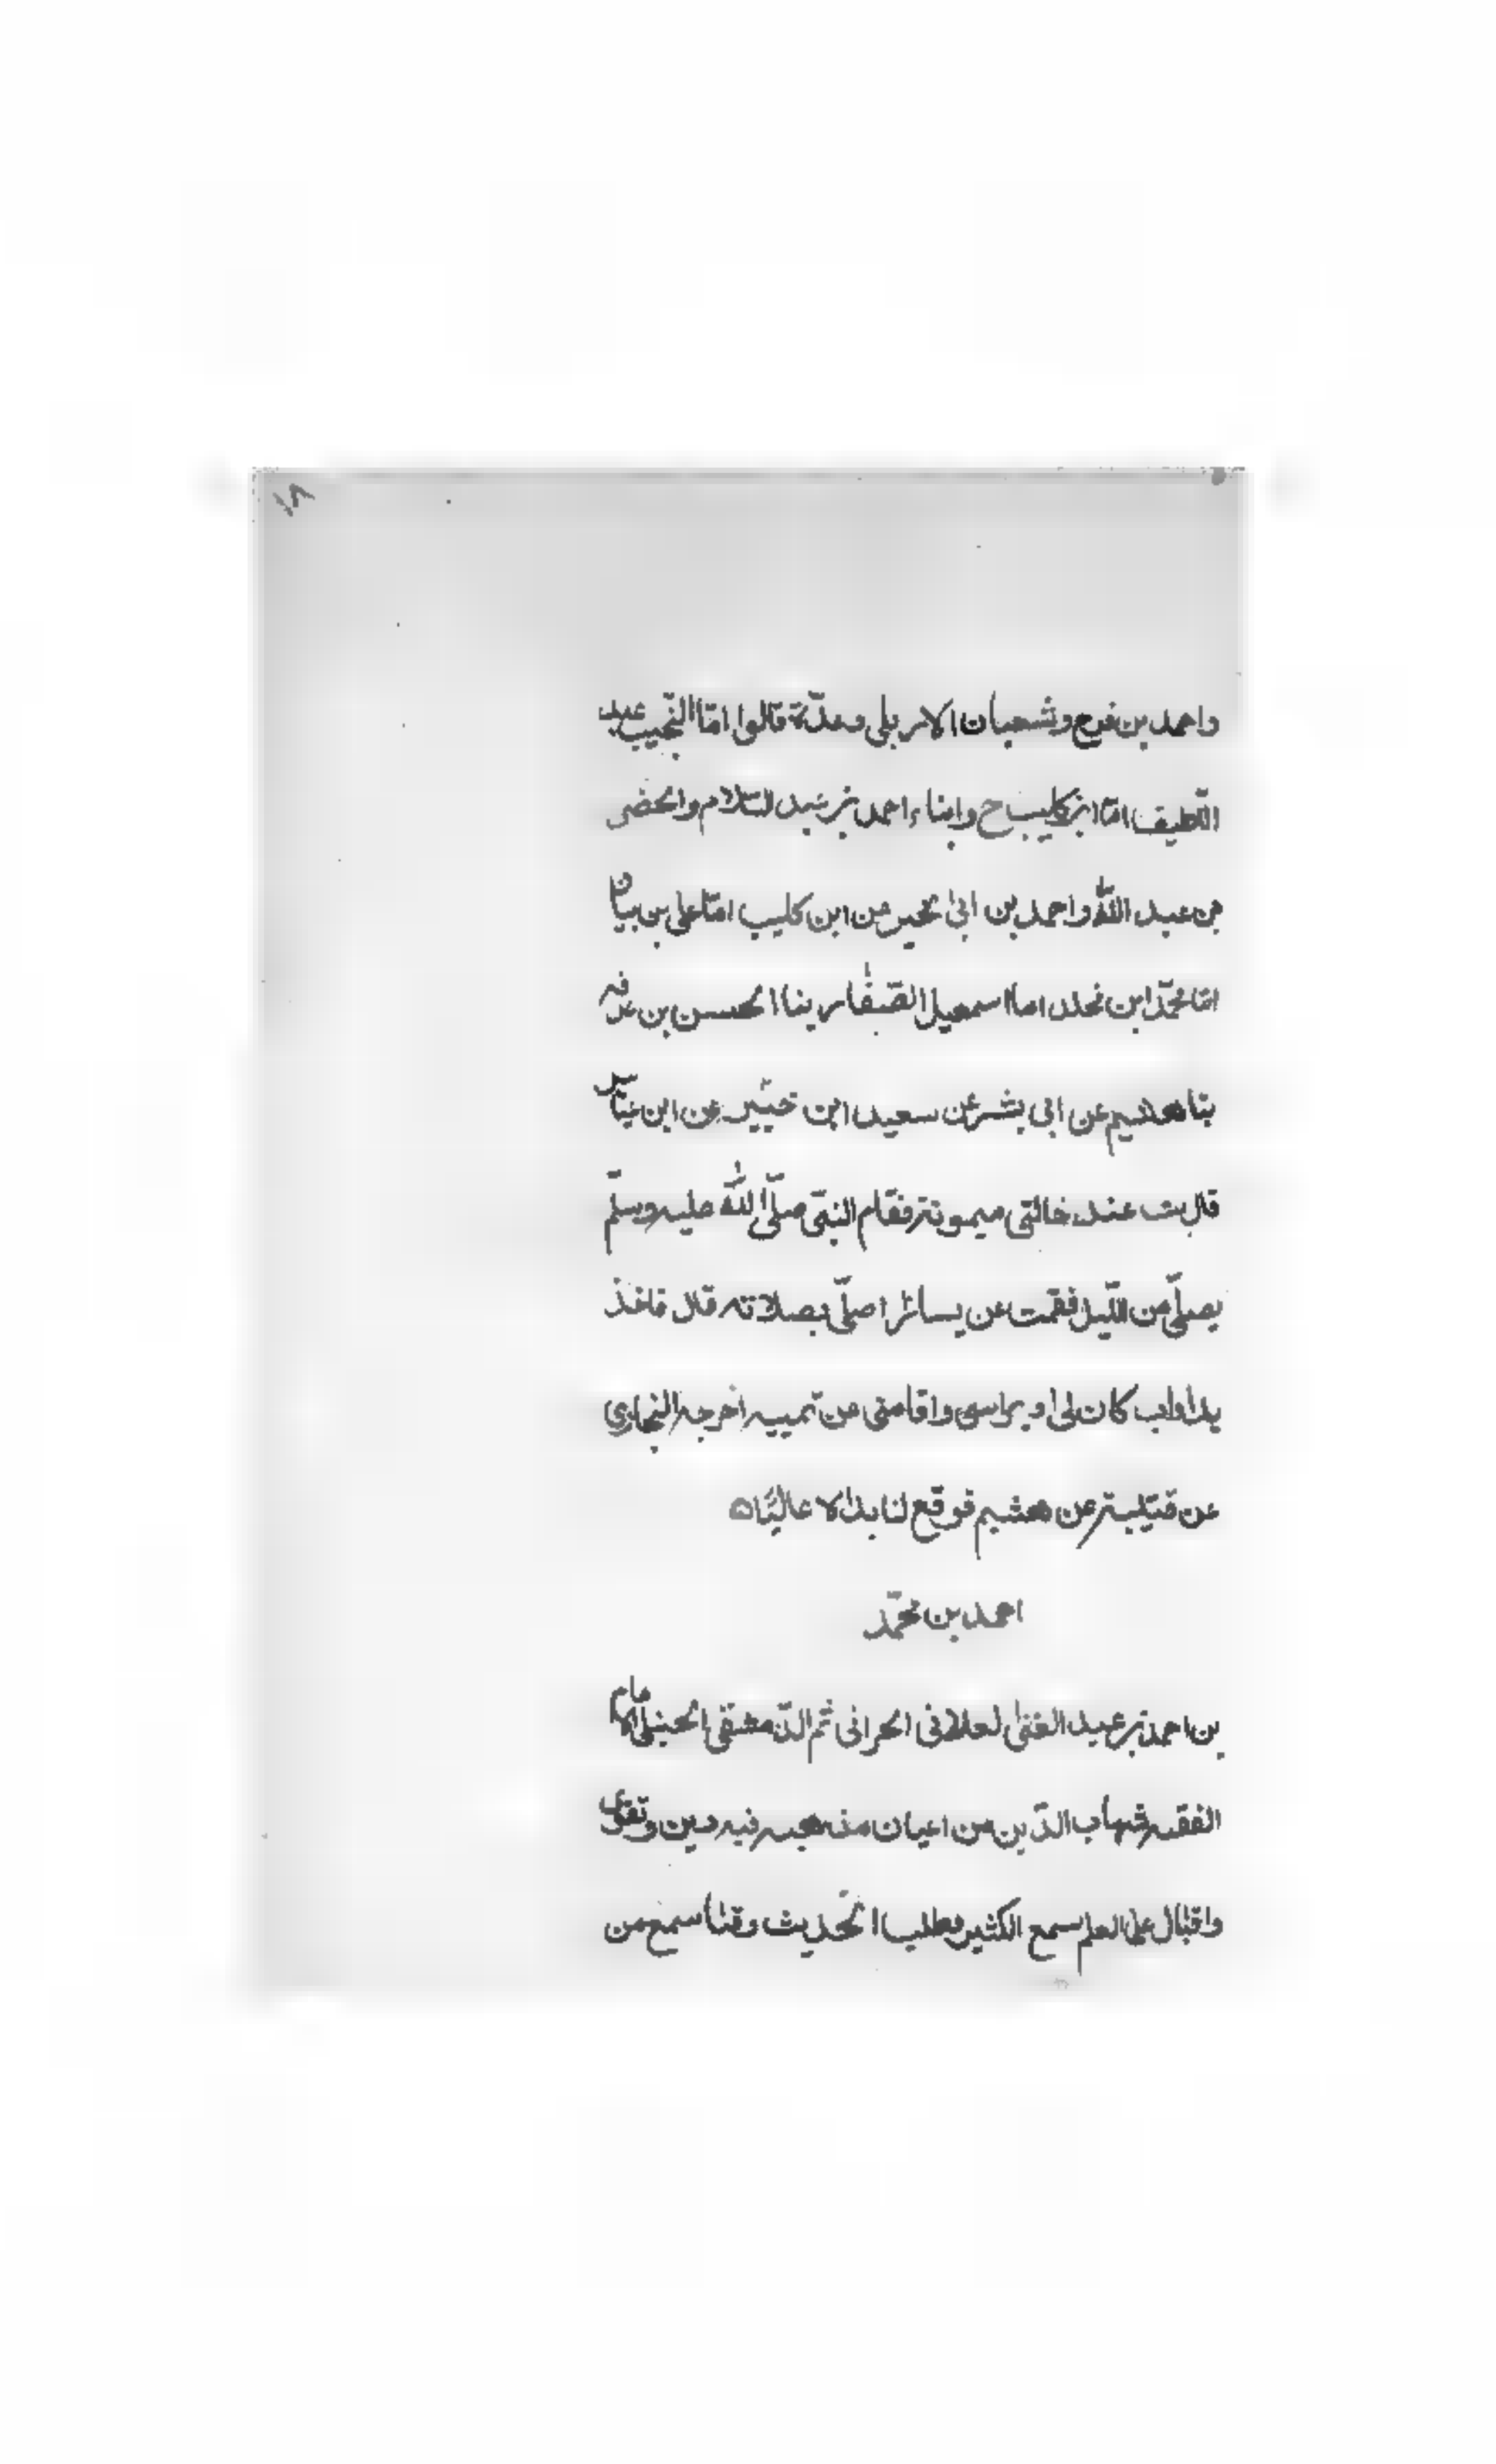 ١٨
واحمد بن فرح وشعبان الاربلى وعدّة قالوا امّا النّجيب عبد
اللّطيف امّا ابن كليب ح وابناء احمد بن عبد السّلام والخضر
بن عبد اللّٰه واحمد بن ابى الخير عن ابن كليب امّا على بن بيان
امّا محمّد ابن مخلد اما اسمعيل الصّفّار بنا الحسن بن عرفه
بنا هشيم عن ابى بشر عن سعيد ابن جبير عن ابن عبّاس
قال بت عند خالتى ميمونة فقام النبّى صلّى اللّٰه عليه وسلّم
يصلّى من اللّيل فقمت عن يساره اصلّى بصلاته قال فاخذ
بذاواب كان لى او براسى واقامنى عن يمييه اخرجه البخارى
عن قتيبة عن هشيم فوقع لنا بدلا عاليًا ه
احمد بن محمّد
بن احمد بن عبيد الغنى الحرانى ثم الدّمشقى الحنبلى الامام
الفقيه شهاب الدّين من اعيان مذهبه فيه دين وتقوى
واقبال على العلم سمع الكثير وطلب الحديث وقتا سمع من